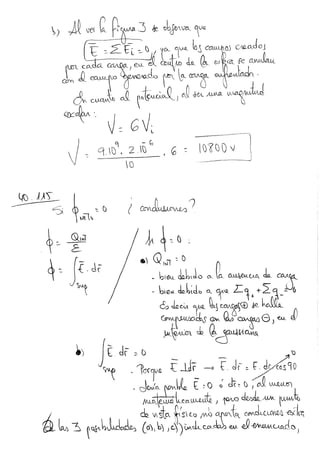 b) Al ver la figura 3 se observa que
E = ΣEi = 0, ya que los campos creados
por cada carga, en el centro de la esfera se anulan
con el campo generado por la carga
En cuanto al potencial, al ser una magnitud
escalar:
V = 6Vi
V = 9.10⁹. 2.10⁻⁶ / 10 . 6 = 10800 v
40. 115
Si ϕ neta = 0 ¿ conclusiones ?
ϕ = Qint / ε
ϕ = ∫sup E. dr
Si ϕ = 0 :
a) Qint = 0
- bien debido a la ausencia de carga
- bien debido a que Σq+ + Σq- = 0
Es decir que las cargas ⊕ se hallen
compensadas con las cargas ⊖, en el
interior de la gaussiana
b) ∫sup E dr = 0
- Porque E ⊥ dr → E. dr = E. dr cos 90 → 0
- Sería posible E = 0 ó dr = 0, al menos
matemáticamente, pero desde un punto
de vista físico no aporta condiciones extra.
De las 3 posibilidades (a), b), c)) indicadas en el enunciado,